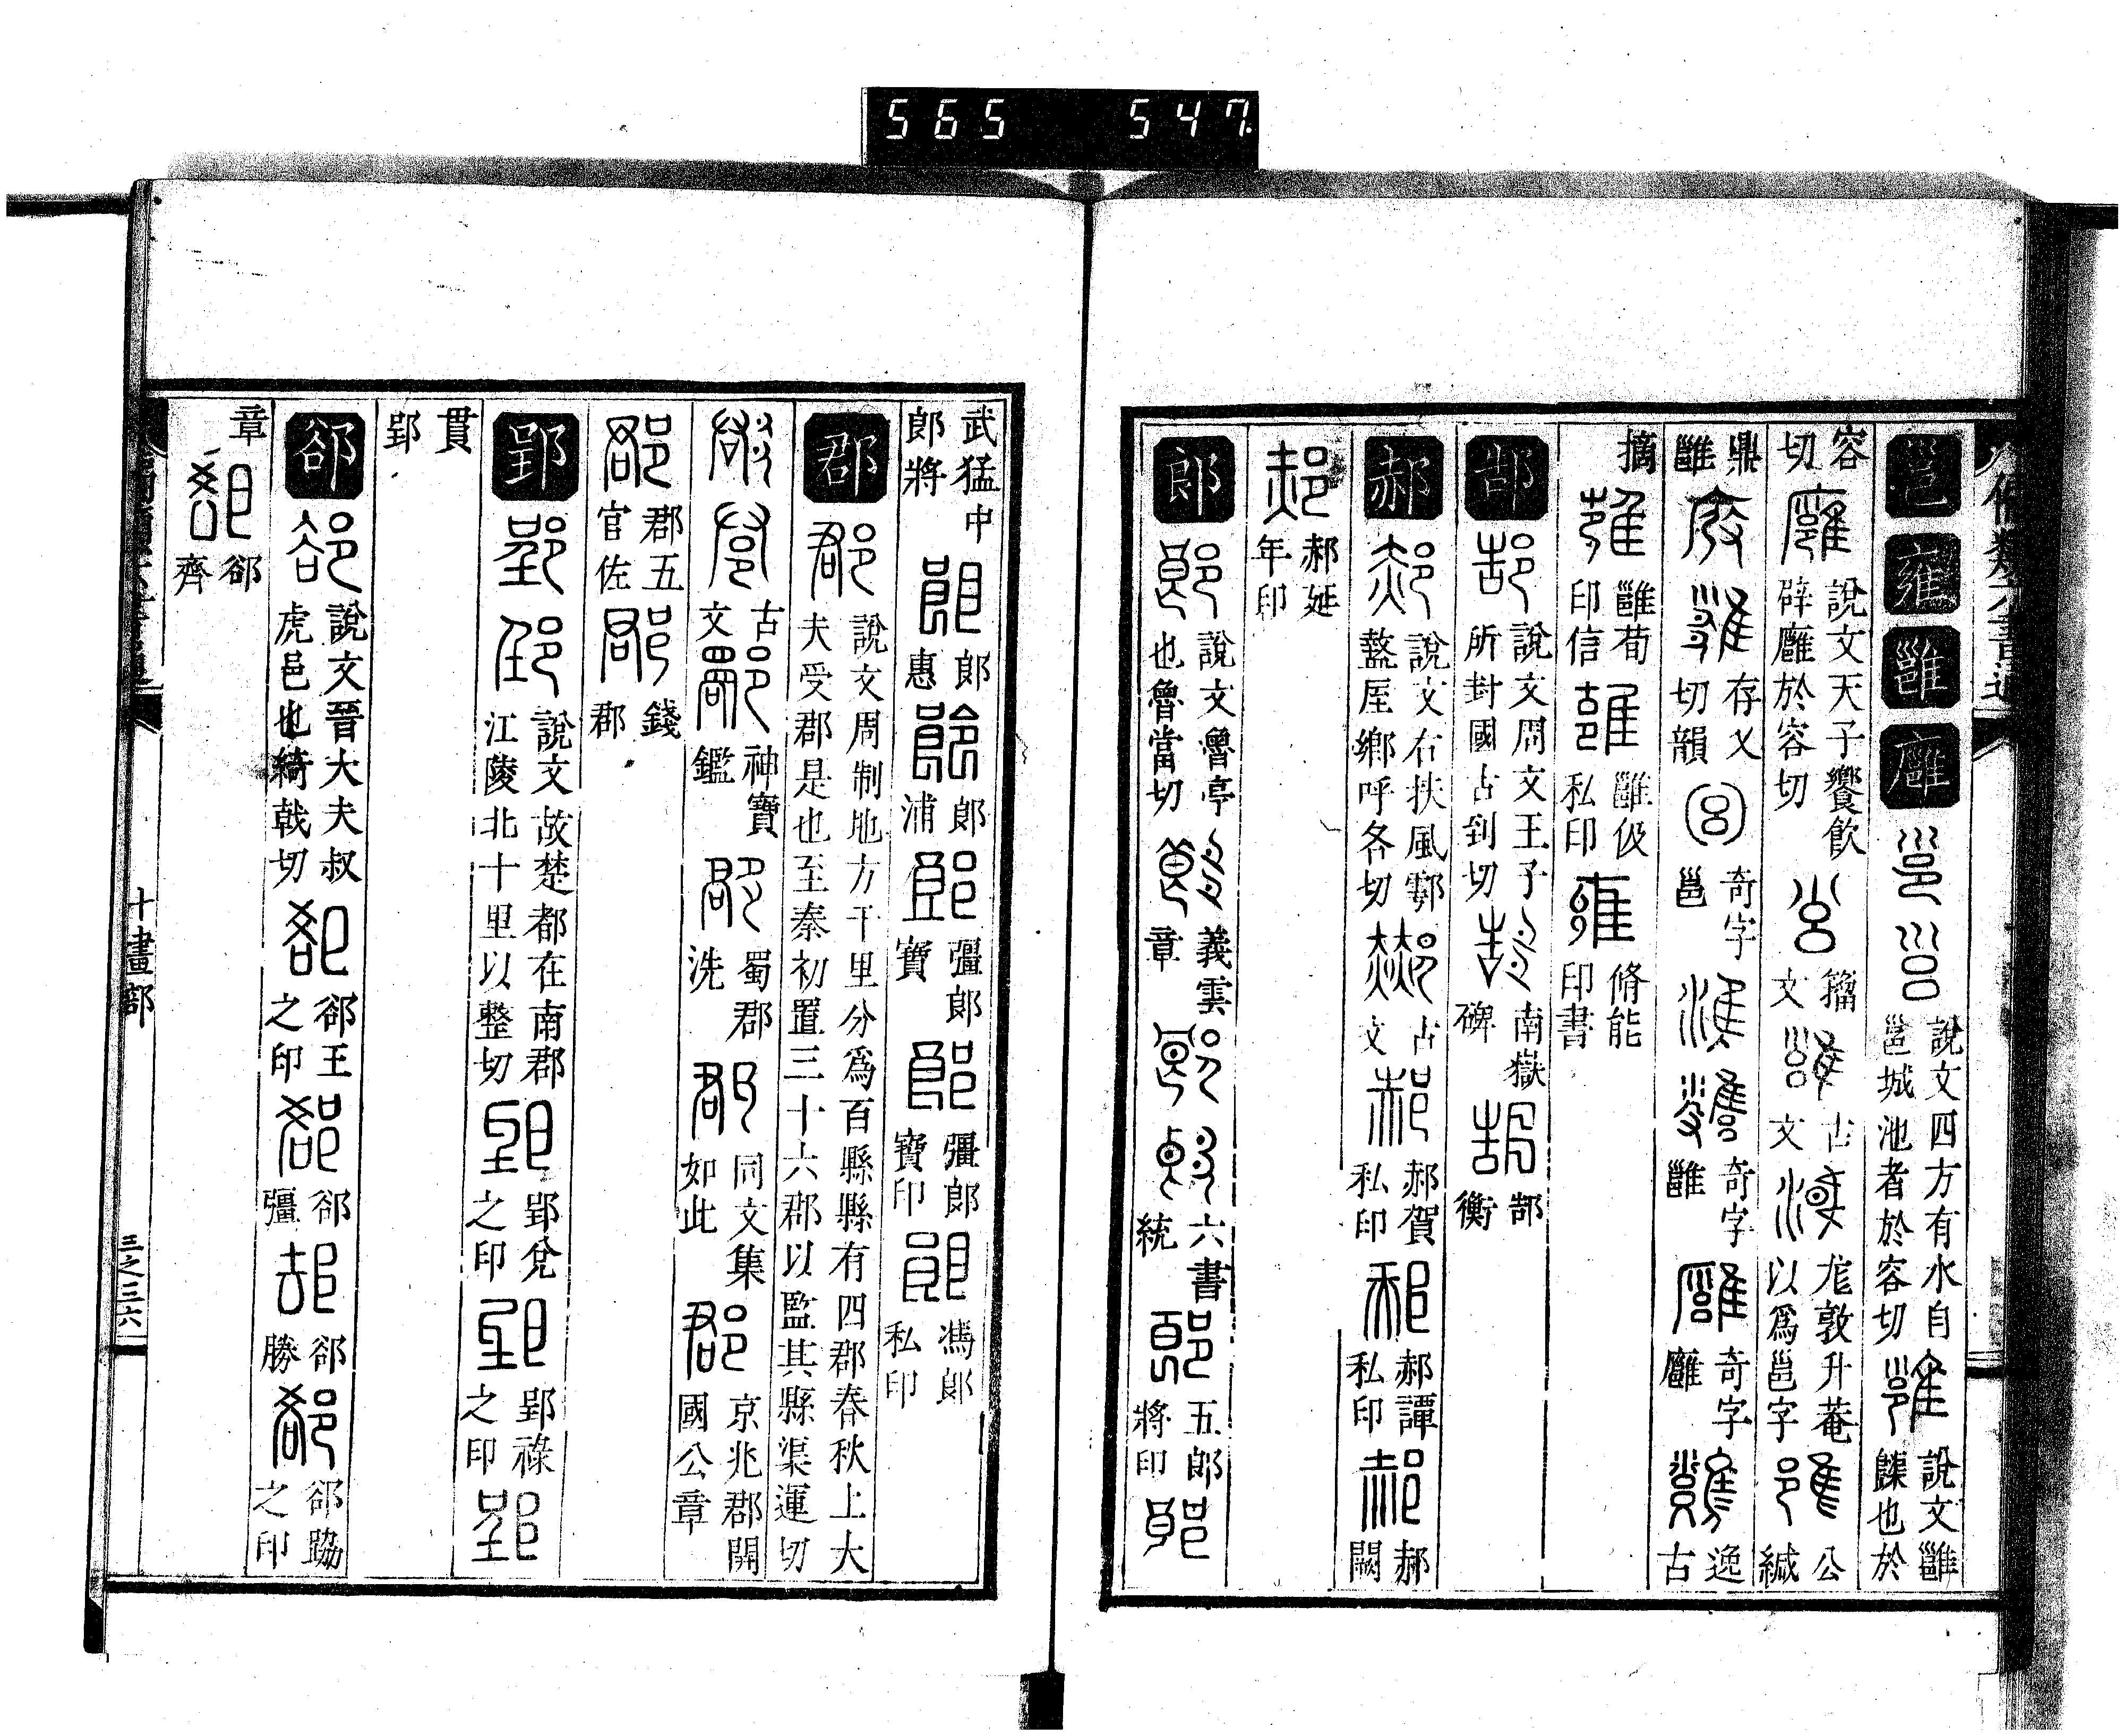 565 547
邕 雍 雝 廱 說文四方有水自邕城池者於容切 說文雝𪆫也於
容切 說文天子饗飲辟廱於容切 籀文 古文 尨敦升菴以爲邕字 公緘
鼎雝 存乂切韻 奇字邕 奇字雝 奇字廱 逸古
摘 雝荀印信 雝伋私印 脩能印書
郜 說文周文王子所封國古到切 南嶽碑 郜衡
郝 說文右扶風鄠盩厔鄉呼各切 古文 郝賀私印 郝譚私印 郝闕
郝延年印
郎 說文魯亭也魯當切 義雲章 六書統 五郎將印
武猛中郎將 郎惠 郎浦 彊郎寶 彊郎寶印 馮郎私印
郡 說文周制地方千里分爲百縣縣有四郡春秋上大夫受郡是也至秦初置三十六郡以監其縣渠運切
古文 神寶鑑 蜀郡洗 同文集如此 京兆郡開國公章
郡五官佐 錢郡
郢 說文故楚都在南郡江陵北十里以整切 郢兌之印 郢祿之印
貫郢
郤 說文晉大夫叔虎邑也綺戟切 郤王之印 郤彊 郤勝 郤勥之印
章 郤齊
十畫部
三之三六